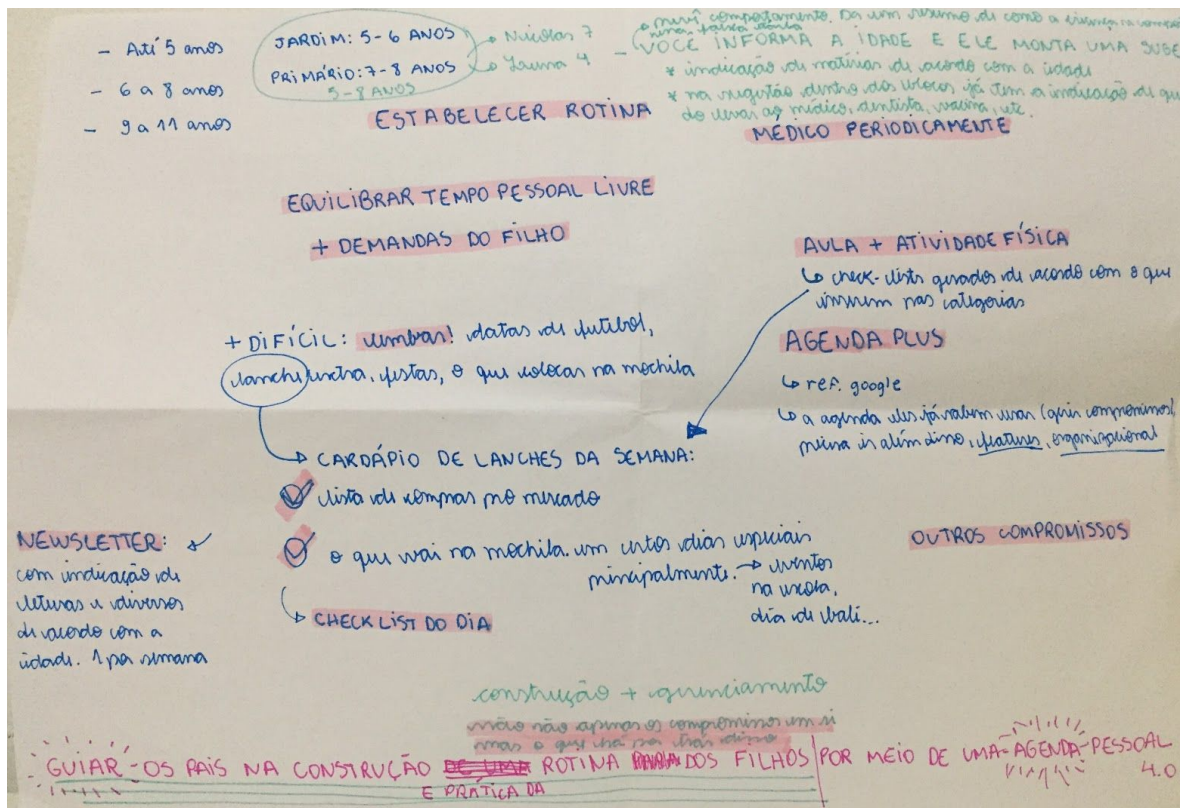 - Até 5 anos
- 6 a 8 anos
- 9 a 11 anos
JARDIM: 5-6 ANOS
PRIMÁRIO: 7-8 ANOS
5-8 ANOS
Nicolas 7
Launa 4
comportamento. Dá um resumo de como a criança
nessa faixa etária
- VOCÊ INFORMA A IDADE E ELE MONTA UMA SUGE
* indicação de matérias de acordo com a idade
* na sugestão dentro dos blocos já tem a indicação de quan
do levar ao médico, dentista, vacina, etc.
ESTABELECER ROTINA
MÉDICO PERIODICAMENTE
EQUILIBRAR TEMPO PESSOAL LIVRE
+ DEMANDAS DO FILHO
AULA + ATIVIDADE FÍSICA
check-lists gerados de acordo com o que
inserem nas categorias
+ DIFÍCIL: lembrar! datas de futebol,
lanche extra, festas, o que colocar na mochila
AGENDA PLUS
ref. google
a agenda eles já sabem usar (gerir compromissos),
precisa ir além disso, features, organizacional
CARDÁPIO DE LANCHES DA SEMANA:
lista de compras pro mercado
o que vai na mochila. em certos dias especiais
principalmente. → eventos
na escola,
dia de balé...
CHECKLIST DO DIA
OUTROS COMPROMISSOS
NEWSLETTER:
com indicação de
leituras e diversos
de acordo com a
idade. 1 por semana
construção + gerenciamento
não são apenas os compromissos em si
mas o que há por trás disso
GUIAR OS PAIS NA CONSTRUÇÃO DE UMA ROTINA PARA DOS FILHOS POR MEIO DE UMA AGENDA PESSOAL
E PRÁTICA DA
4.0